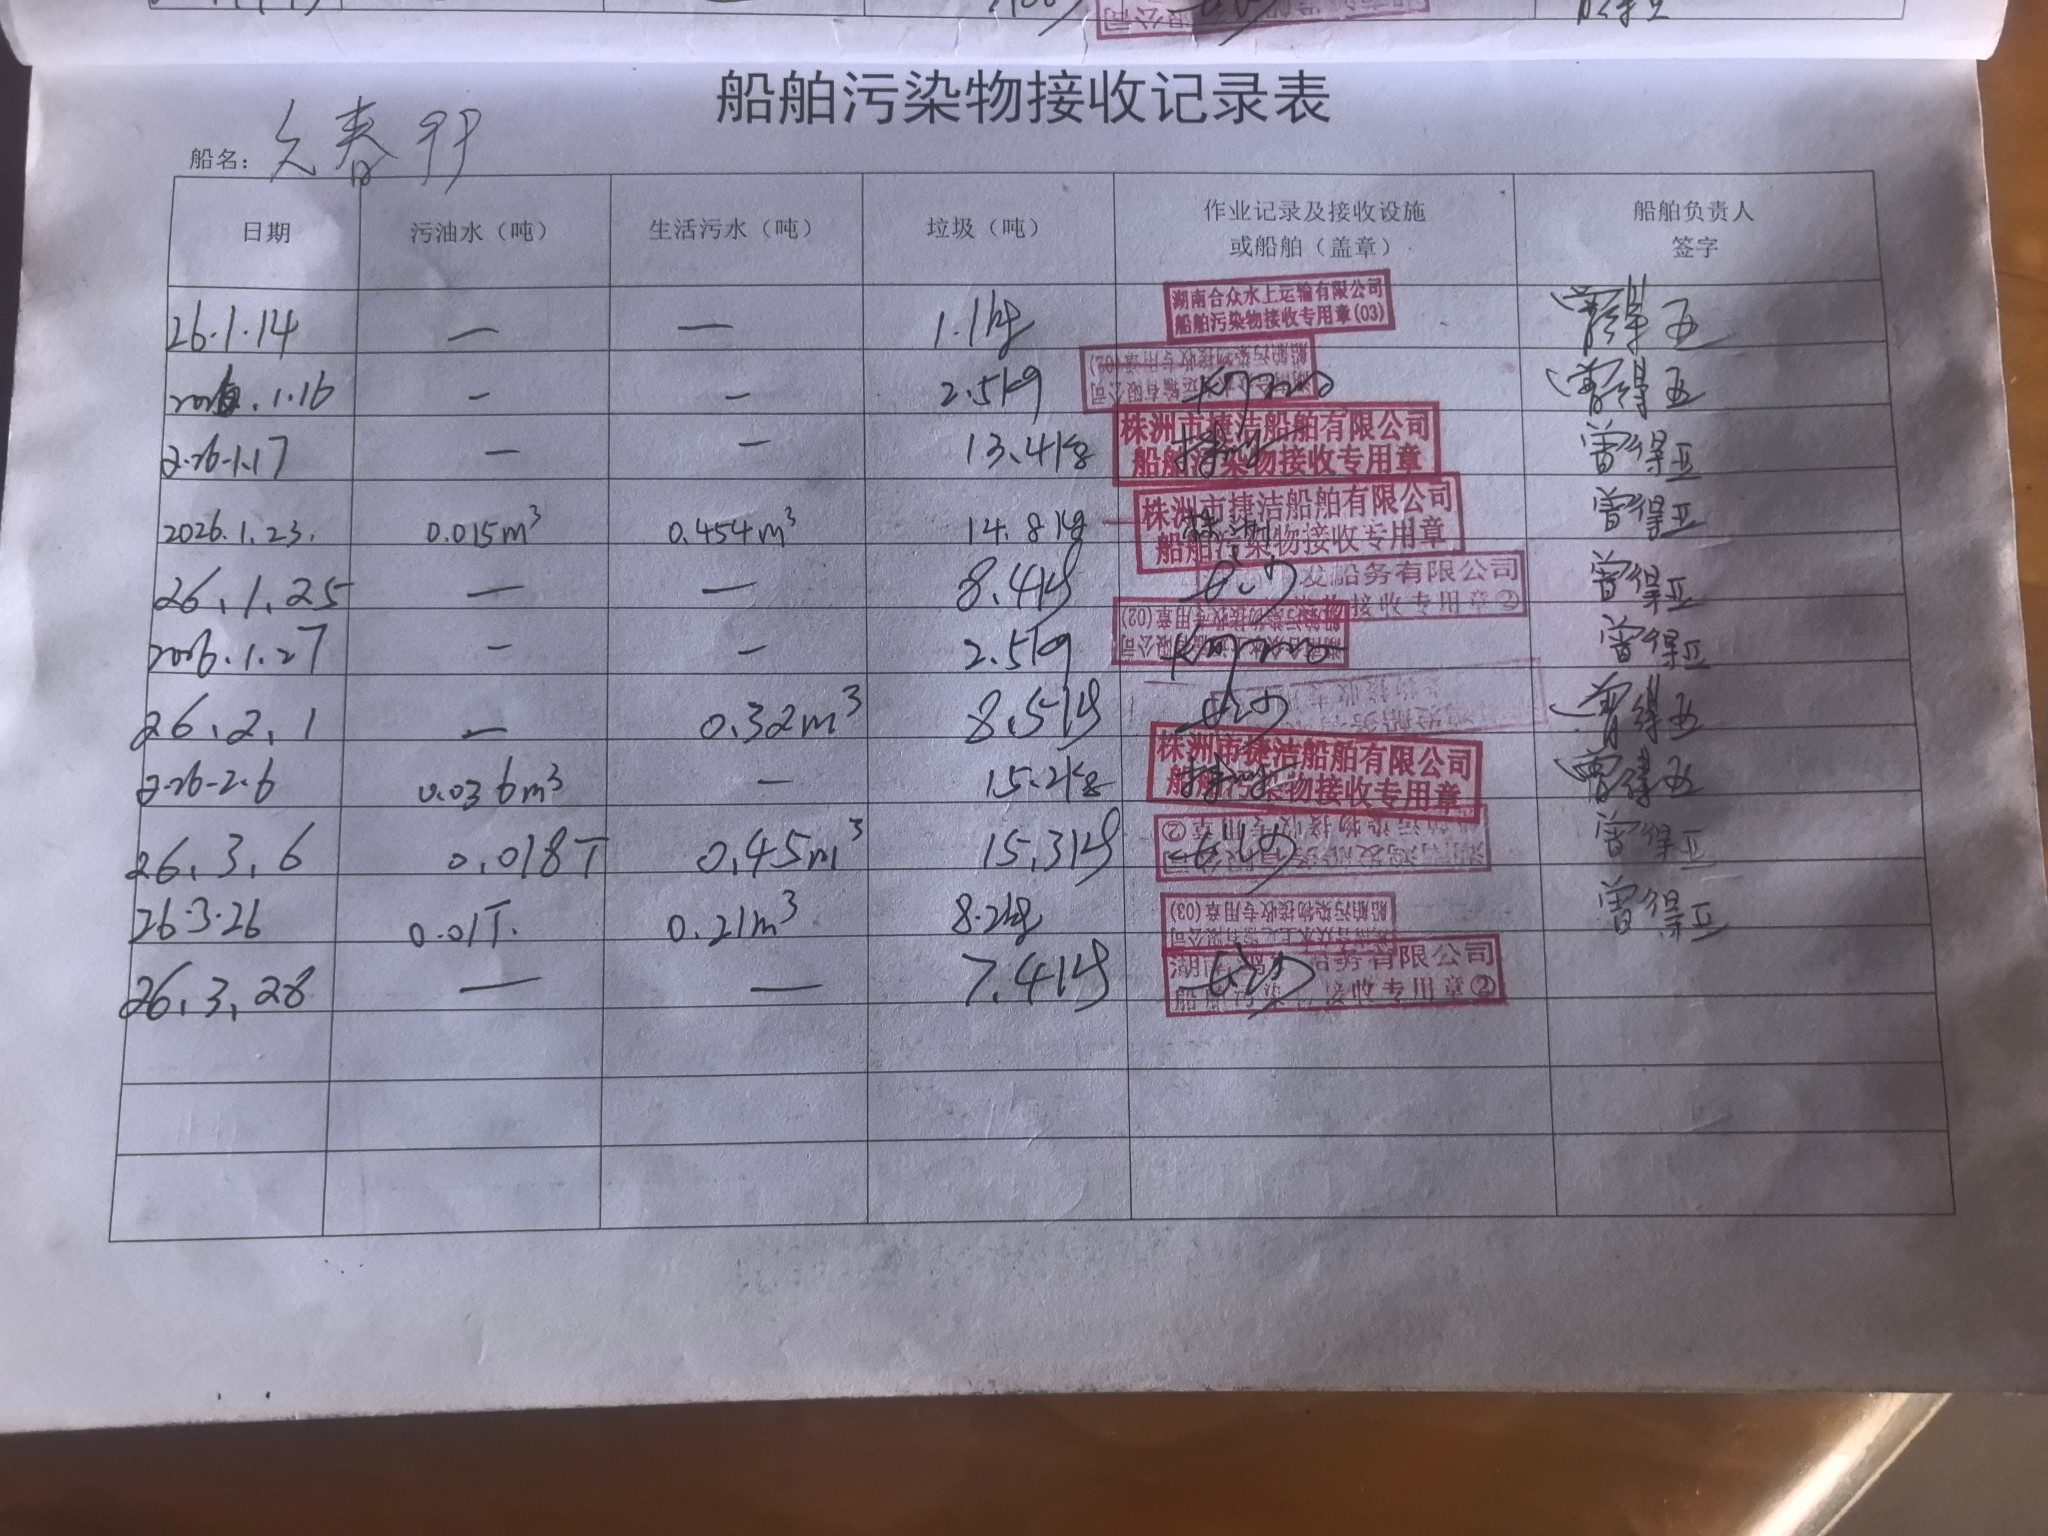 船舶污染物接收记录表
船名: 久春99
日期 污油水（吨） 生活污水（吨） 垃圾（吨） 作业记录及接收设施或船舶（盖章） 船舶负责人签字
26.1.14 — — 1.1kg 湖南合众水上运输有限公司 船舶污染物接收专用章(03) 曾得亚
2026.1.16 — — 2.5kg 船舶污染物接收专用章(02) 曾得亚
2026.1.17 — — 13.4kg 株洲市捷洁船舶有限公司 船舶污染物接收专用章 曾得亚
2026.1.23. 0.015m³ 0.454m³ 14.8kg 株洲市捷洁船舶有限公司 船舶污染物接收专用章 曾得亚
26.1.25 — — 8.4kg 发船务有限公司 接收专用章② 曾得亚
2026.1.27 — — 2.5kg 船舶污染物接收专用章(02) 曾得亚
26.2.1 — 0.32m³ 8.5kg 曾得亚
2026-2.6 0.036m³ — 15.2kg 株洲市捷洁船舶有限公司 船舶污染物接收专用章 曾得亚
26.3.6 0.018T 0.45m³ 15.3kg 曾得亚
26.3.26 0.01T. 0.21m³ 8.2kg 船舶污染物接收专用章(03) 曾得亚
26.3.28 — — 7.4kg 船务有限公司 接收专用章②